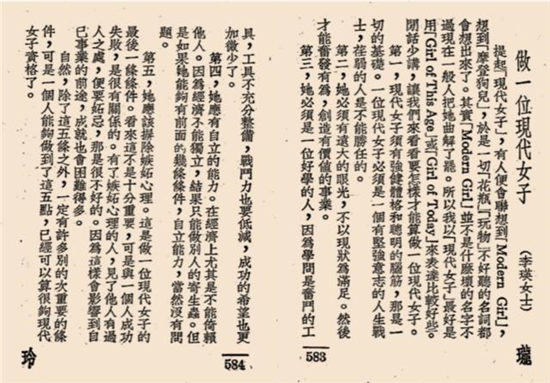 做一位現代女子
(李瑛女士)
提起「現代女子」,有人便會聯想到「Modern Girl」,
想到「摩登狗兒」,於是一切「花瓶」「玩物」不好聽的名詞都
會想出來了。其實「Modern Girl」並不是什麼壞的名字不
過現在一般人把她曲解了罷。所以我以「現代女子」最好是
用「Girl of This Age」或「Girl of Today」來表達比較好些。
閒話少講,讓我們來看看要怎樣才能算做一位現代女子。
第一,現代女子須有強健體格和聰明的腦筋,那是一
切的基礎。一位現代女子必須是一個有堅強意志的人生戰
士,荏弱的人是不能勝任的。
第二,她必須有遠大的眼光,不以現狀為滿足。然後
才能奮發有為,創造有價值的事業。
第三,她必須是一位好學的人,因為學問是奮鬥的工
瓏
583
具,工具不充分整備,戰鬥力也要低減,成功的希望也更
加微少了。
第四,她應有自立的能力。在經濟上尤其是不能倚賴
他人。因為經濟不能獨立,結果只能做別人的寄生蟲。但
是如果她能夠有前面的幾條條件,自立能力,當然沒有問
題。
第五,她應該摒除嫉妬心理。這是做一位現代女子的
最後一條條件。看來這不是十分重要,可是與一個人成功
失敗,是很有關係的。有了嫉妬心理的人,見了他人有過
人之處,便要妬忌,那是很不好的。因為這樣會影響到自
己事業的前途,成就也會困難得多。
自然,除了這五條之外,一定有許多別的次重要的條
件,可是一個人能夠做到了這五點,已經可以算很夠現代
女子資格了。
584
玲